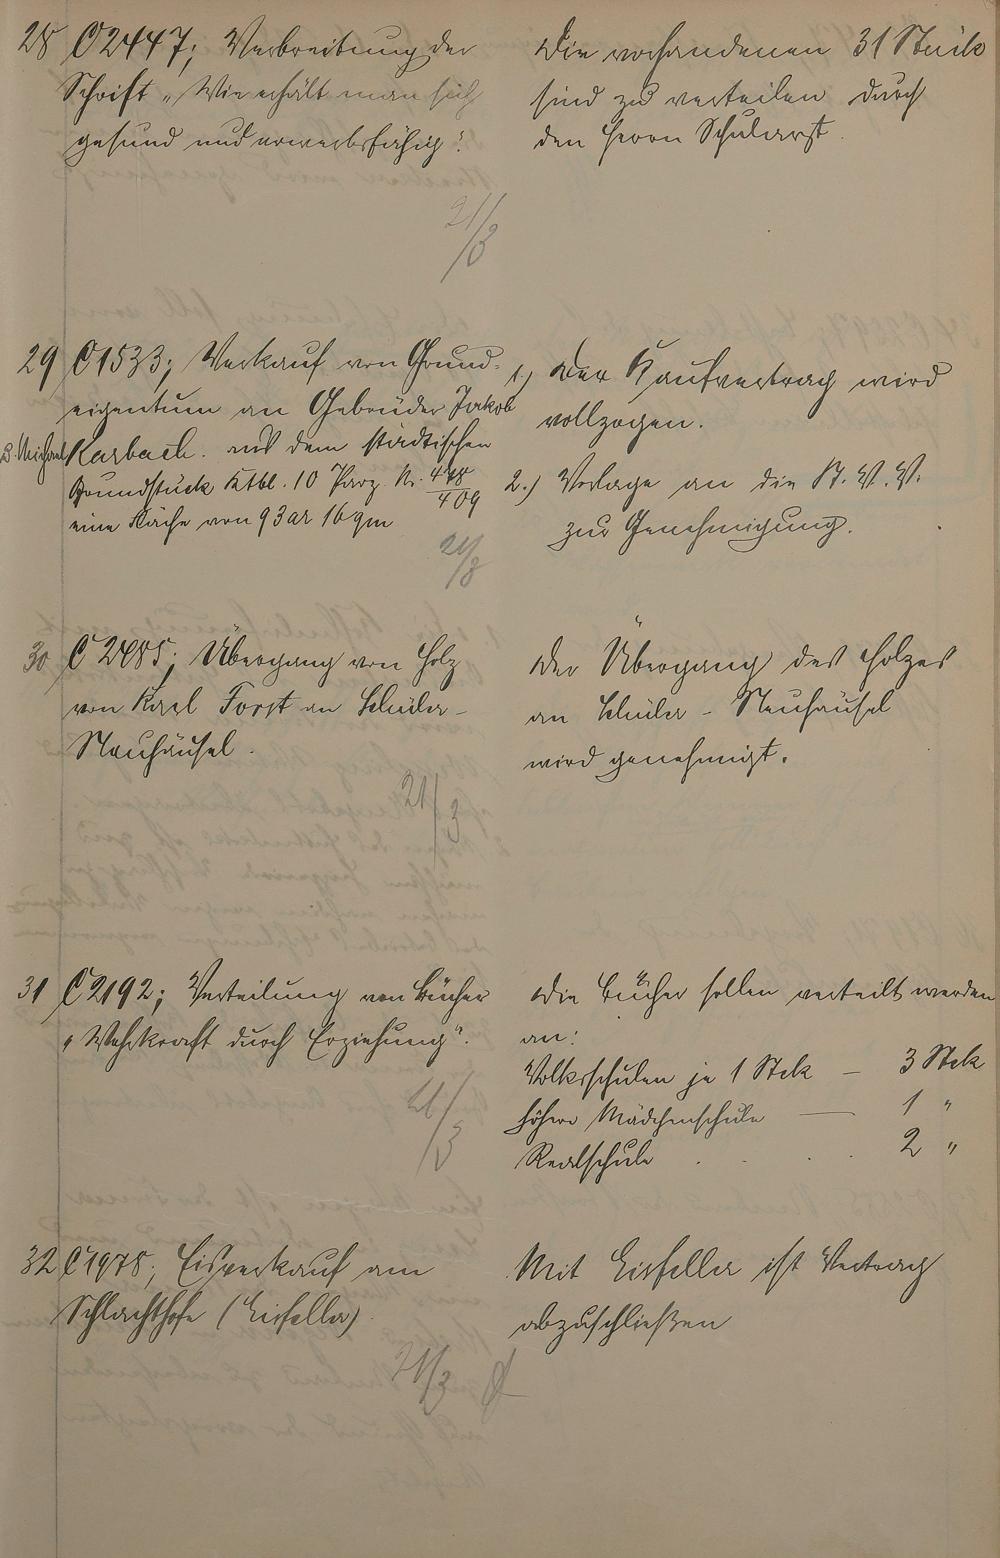 28 C 2447; Verbreitung der
Schrift „Wie erhält man sich
gesund und erwerbsfähig".
21/3
Die vorhandenen 31 Stück
sind zu verteilen durch
den Herrn Schularzt.
29 C 1533; Verkauf von Grund-
eigentum an Gebrüder Jakob
& Michael Karbach. aus dem städtischen
Grundstück Ktbl. 10 Parz. Nr. 448/409
eine Fläche von 93 ar 16 qm
21/3
1.) Der Kaufvertrag wird
vollzogen.
2.) Vorlage an die St. V. V.
zur Genehmigung.
30 C 2485; Übergang von Holz
von Karl Forst an Schüler-
Neuhäusel.
21/3
Der Übergang des Holzes
an Schüler - Neuhäusel
wird genehmigt.
31 C 2192; Verteilung von Bücher
„Wehrkraft durch Erziehung".
21/3
Die Bücher sollen verteilt werden
an:
Volksschulen je 1 Stck — 3 Stck
höhere Mädchenschule — 1 "
Realschule . . . 2 "
32 C 1978; Eisverkauf am
Schlachthofe (Eisfeller)
21/3
Mit Eisfeller ist Vertrag
abzuschließen